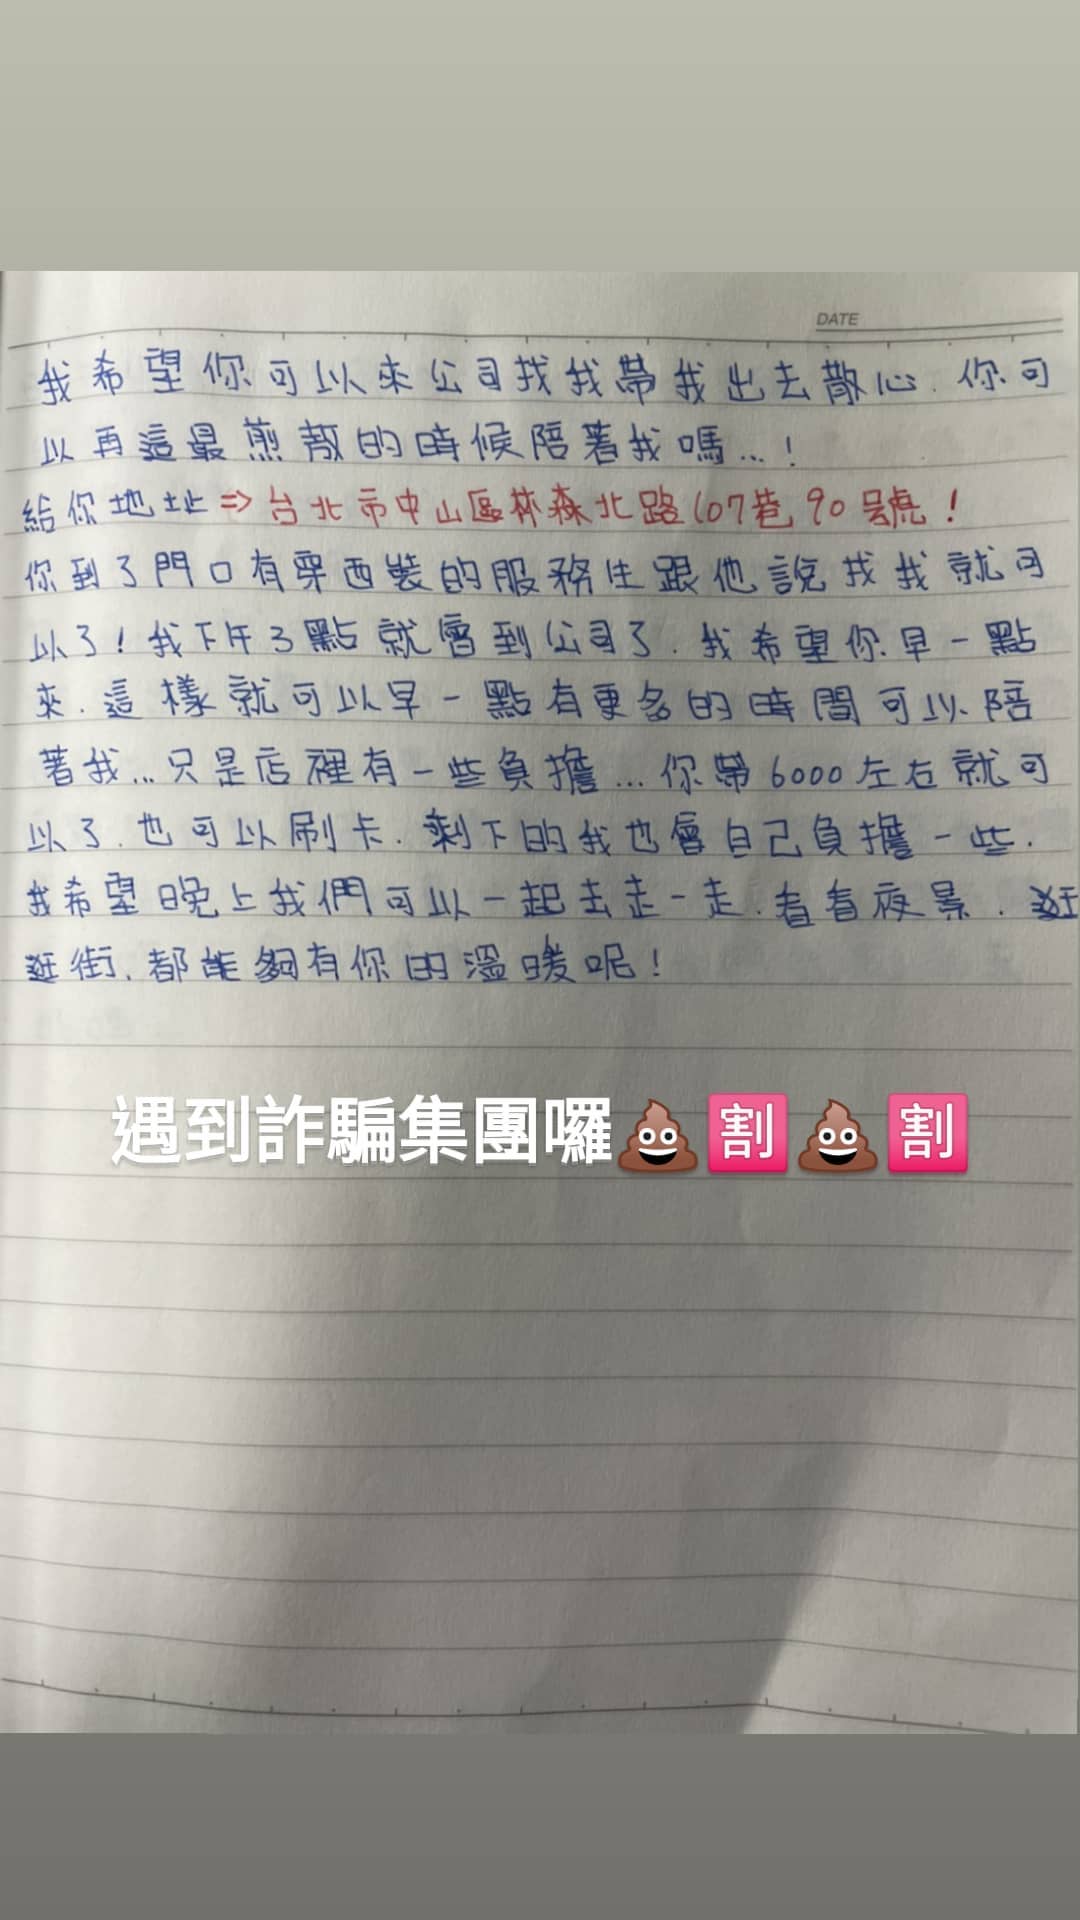 DATE
我希望你可以來公司找我帶我出去散心.你可
以再這最煎熬的時候陪著我嗎...!
給你地址⇒台北市中山區林森北路107巷90號!
你到了門口有穿西裝的服務生跟他說找我就可
以了!我下午3點就會到公司了.我希望你早一點
來.這樣就可以早一點有更多的時間可以陪
著我...只是店裡有一些負擔...你帶6000左右就可
以了.也可以刷卡.剩下的我也會自己負擔一些.
我希望晚上我們可以一起去走一走.看看夜景.逛
逛街.都能夠有你的溫暖呢!
遇到詐騙集團囉💩🈹💩🈹